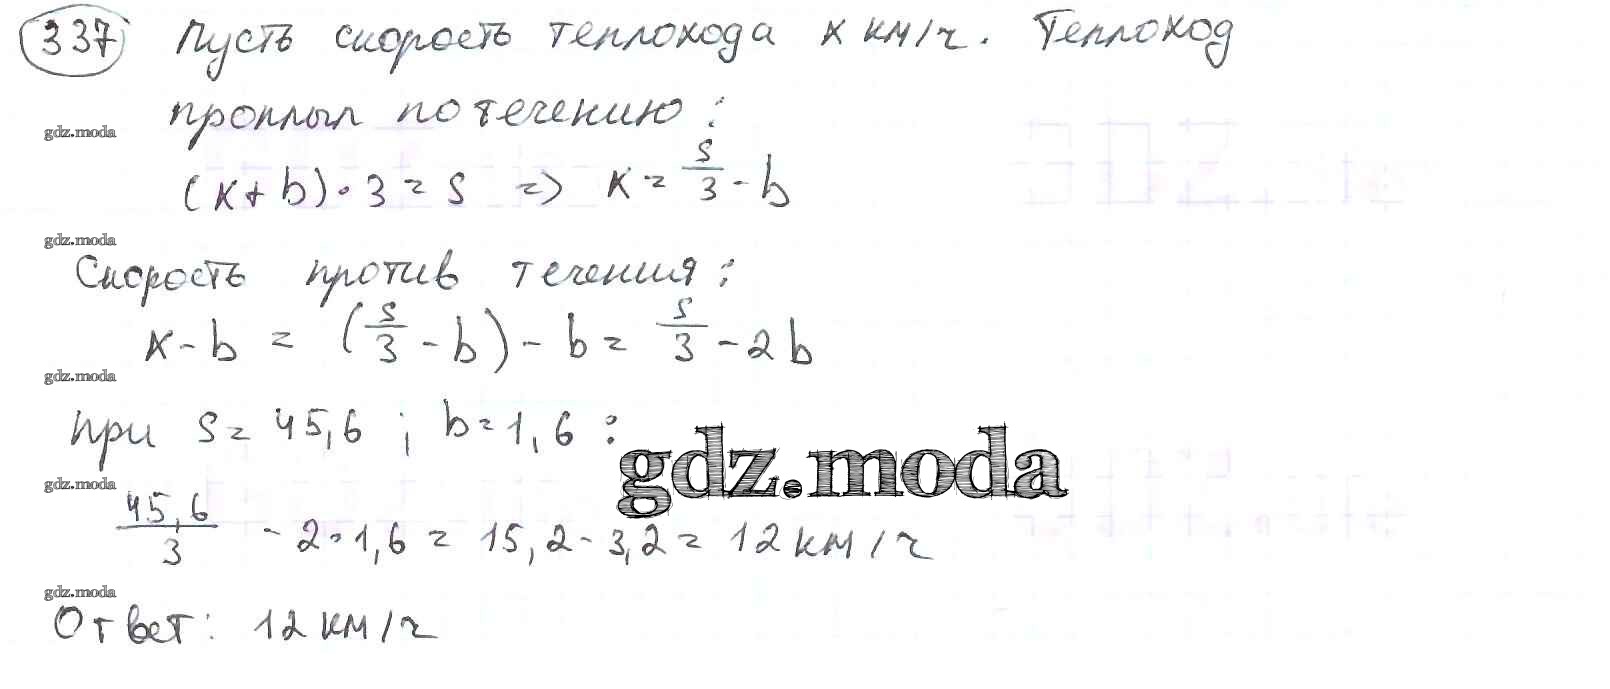 337 Пусть скорость теплохода x км/ч. Теплоход
проплыл по течению:
gdz.moda
(x+b)·3=s => x=s/3-b
gdz.moda
Скорость против течения:
x-b = (s/3-b)-b= s/3-2b
gdz.moda
при s=45,6; b=1,6:
gdz.moda
gdz.moda
45,6/3 - 2·1,6= 15,2-3,2= 12 км/ч
gdz.moda
Ответ: 12 км/ч